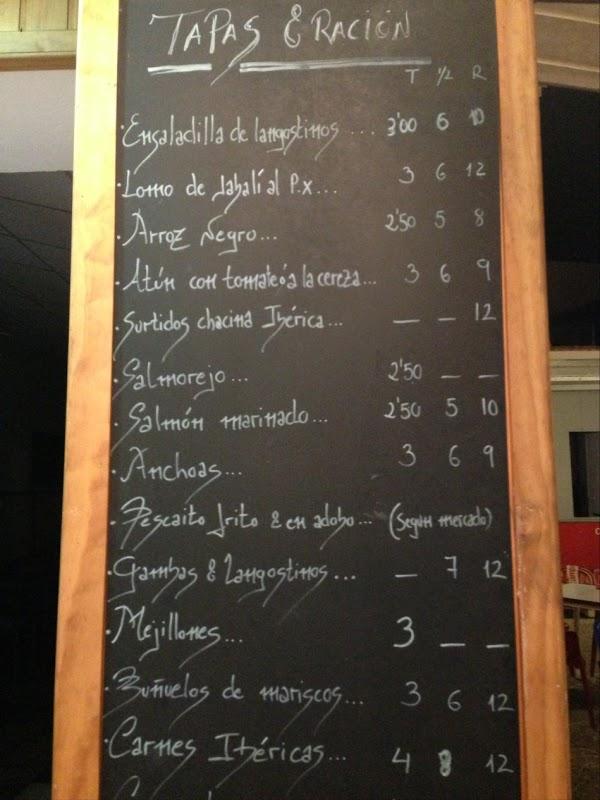 TAPAS & RACIÓN
T ½ R
·Ensaladilla de langostinos ... 3'00 6 10
·Lomo de Jabalí al P.x... 3 6 12
·Arroz Negro... 2'50 5 8
·Atún con tomate ó a la cereza... 3 6 9
·Surtidos chacina Ibérica... — — 12
·Salmorejo... 2'50 — —
·Salmón marinado... 2'50 5 10
·Anchoas... 3 6 9
·Pescaito frito & en adobo... (Según mercado)
·Gambas & Langostinos... — 7 12
·Mejillones... 3 — —
·Buñuelos de mariscos... 3 6 12
·Carnes Ibéricas... 4 8 12